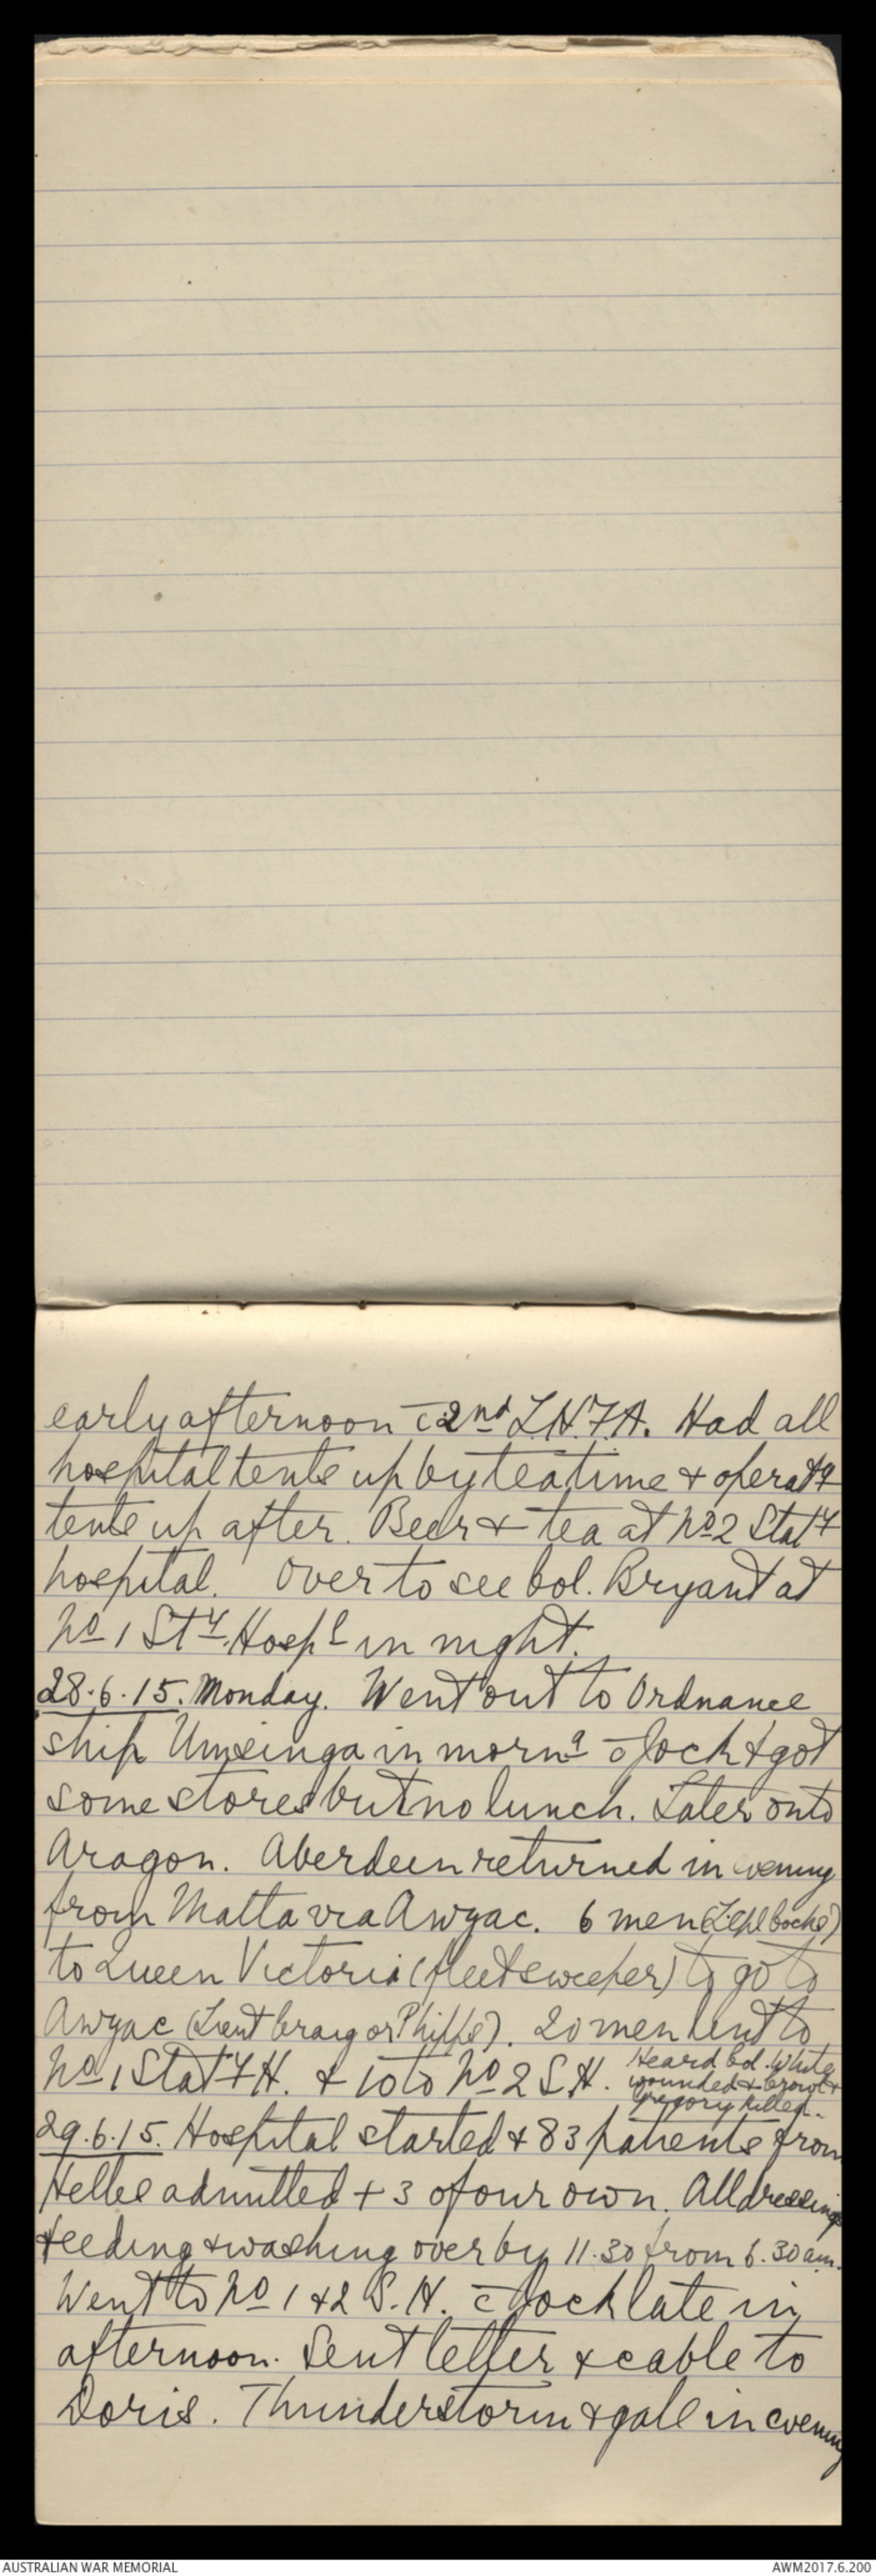 early afternoon c̄ 2nd L.H.F.A. Had all
hospital tents up by tea time & operatg
tents up after. Beer & tea at No 2 Staty
hospital. Over to see Col. Bryant at
No 1 Sty. Hospl in night.
28.6.15. Monday. Went out to Ordnance
ship Umsinga in morng c̄ Jock & got
some stores but no lunch. Later onto
Aragon. Aberdeen returned in evening
from Malta via Anzac. 6 men
to Queen Victoria (fleetsweeper) to go to
Anzac (Lieut Craig or Phipps). 20 men lent to
No 1 Staty H. & 10 to No 2 S.H. Heard Col. White
wounded & Brown &
Gregory killed.
29.6.15. Hospital started & 83 patients from
Helles admitted + 3 of our own. All dressings
feeding & washing over by 11.30 from 6.30 am.
Went to No 1 & 2 S.H. c̄ Jock late in
afternoon. Sent letter & cable to
Doris. Thunderstorm & gale in evening
AUSTRALIAN WAR MEMORIAL
AWM2017.6.200